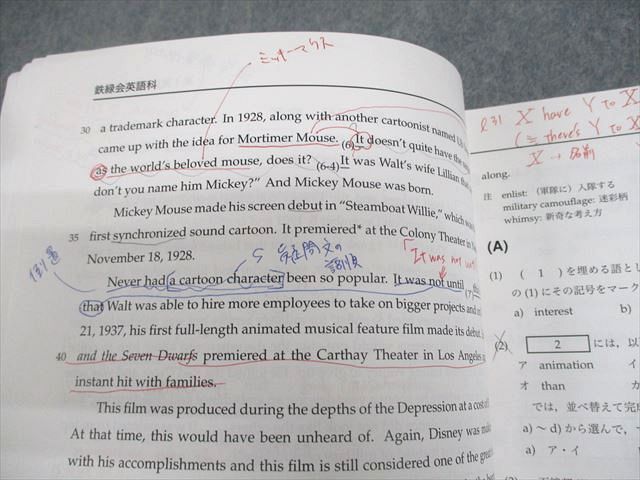 鉄緑会英語科
ミッキーマウス
30 a trademark character. In 1928, along with another cartoonist named
came up with the idea for Mortimer Mouse. (6) It doesn't quite have the
as the world's beloved mouse, does it? (6-4) It was Walt's wife Lillian
don't you name him Mickey?" And Mickey Mouse was born.
Mickey Mouse made his screen debut in "Steamboat Willie," which
35 first synchronized sound cartoon. It premiered* at the Colony Theater in
November 18, 1928.
倒置
S 疑問文の語順
「It was not
Never had [a cartoon character] been so popular. It was not until (7)
that Walt was able to hire more employees to take on bigger projects and
21, 1937, his first full-length animated musical feature film made its debut.
40 and the Seven Dwarfs premiered at the Carthay Theater in Los Angeles
instant hit with families.
This film was produced during the depths of the Depression at a cost of
At that time, this would have been unheard of. Again, Disney was
with his accomplishments and this film is still considered one of the
l31 X have Y to X
(= there's Y to X
X → 名前
along.
注 enlist: (軍隊に) 入隊する
military camouflage: 迷彩柄
whimsy: 新奇な考え方
(A)
(1) ( 1 ) を埋める語とし
の (1) にその記号をマーク
a) interest b)
(2) 2 には, 以
ア animation イ
オ than カ
では, 並べ替えて完成
a)~d) から選んで,
a) ア・イ